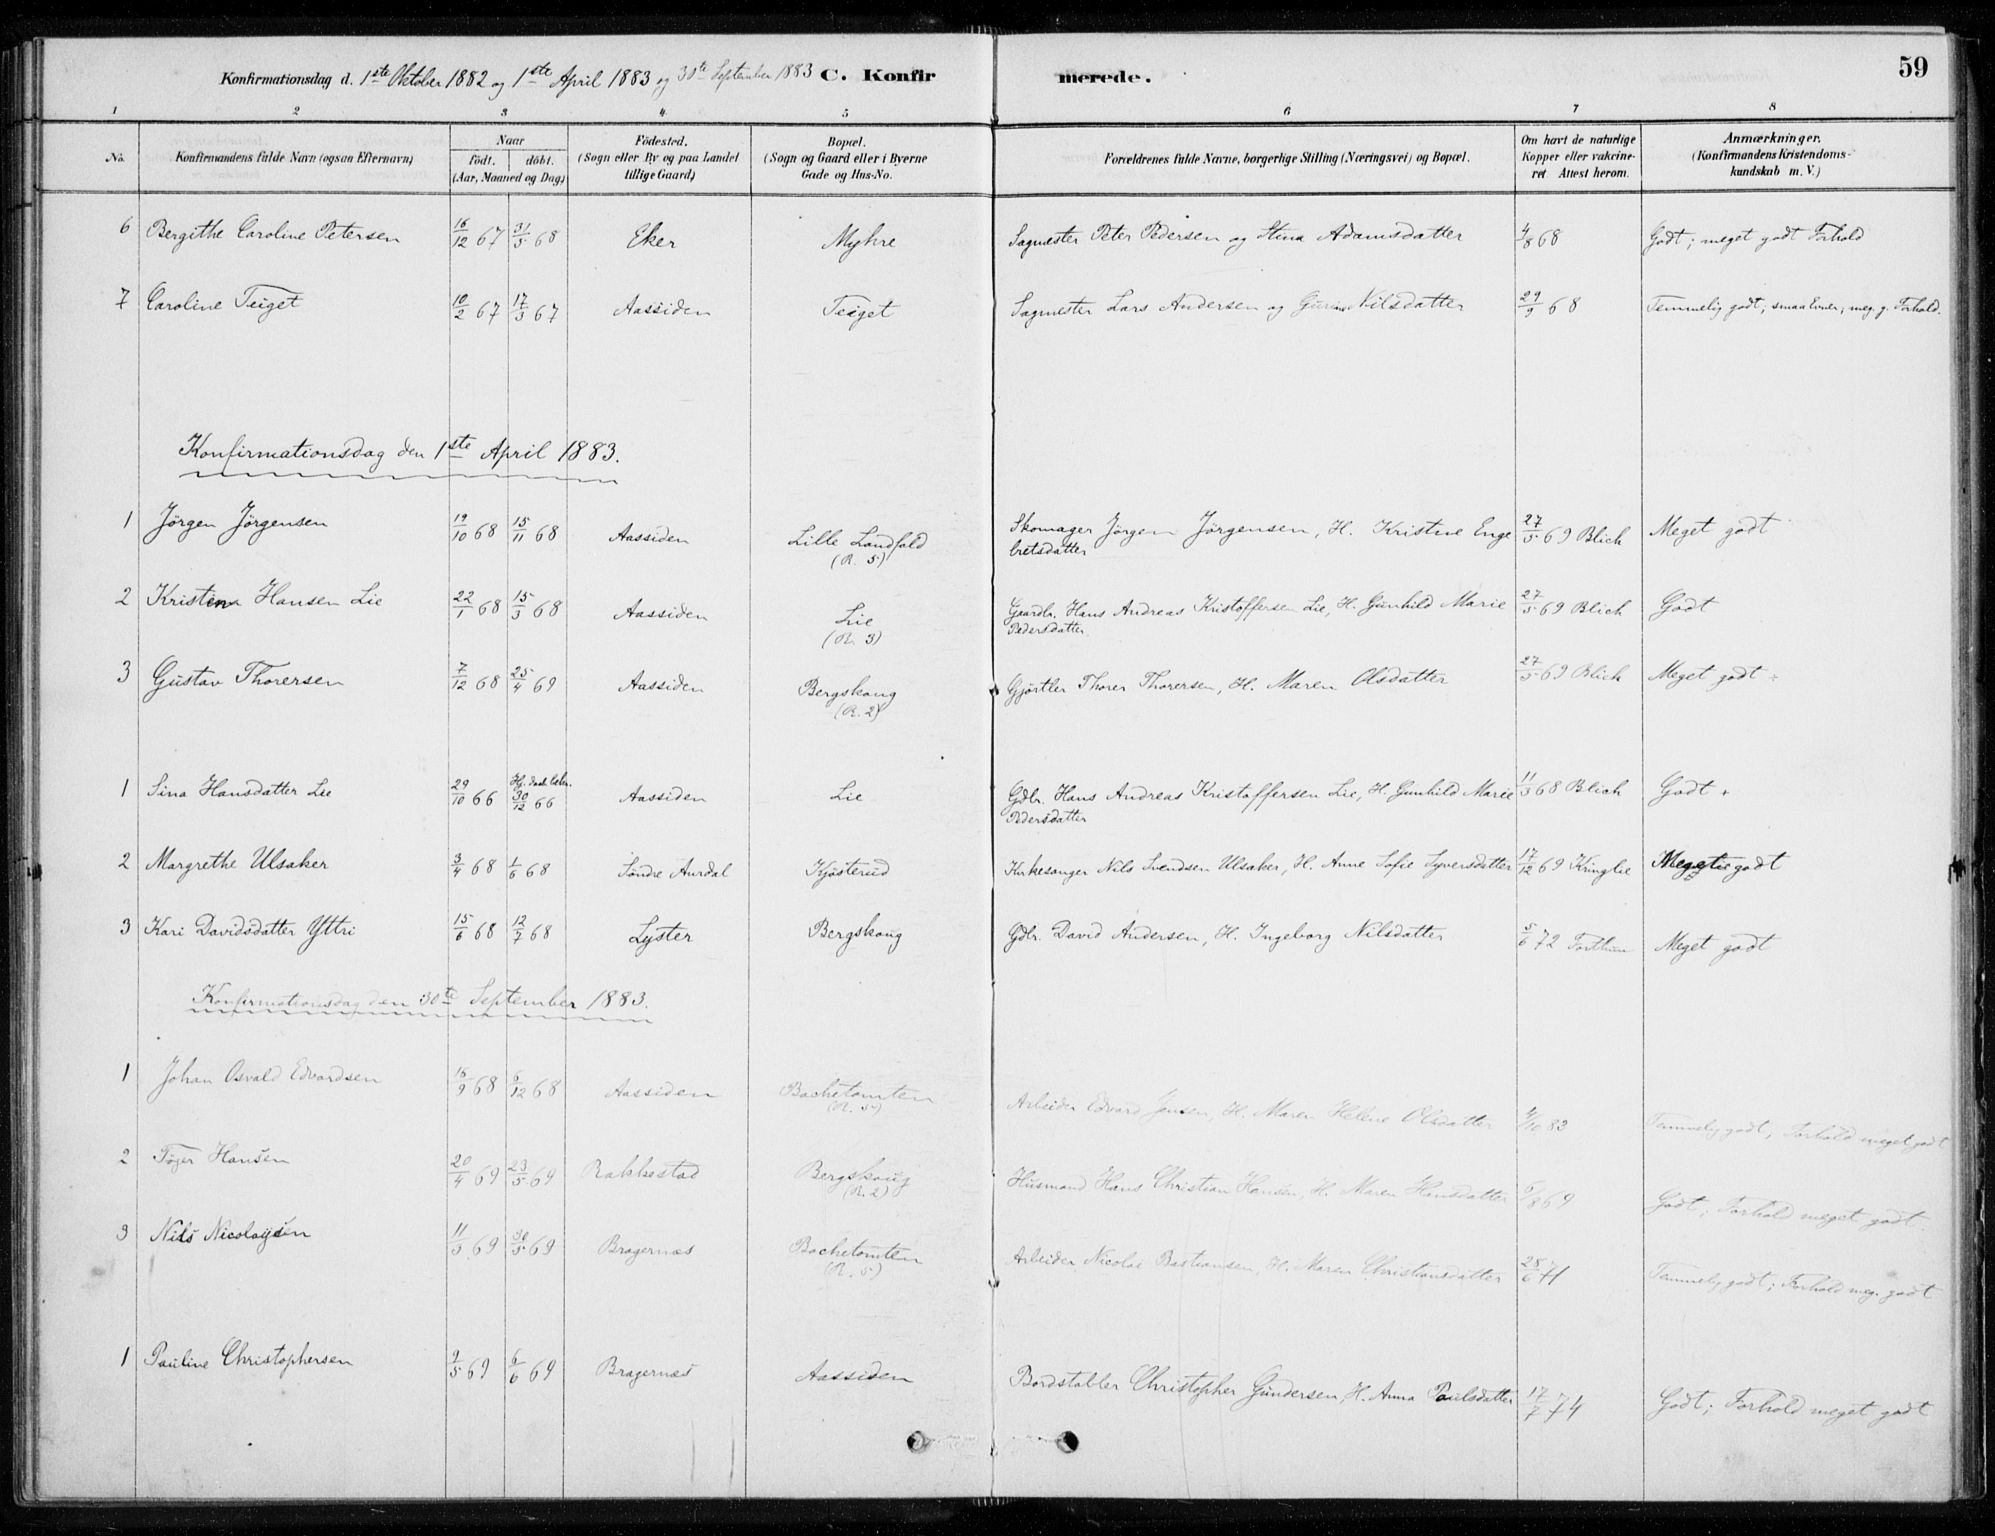 59
Konfirmationsdag d. 1ste Oktober 1882 og 1ste April 1883 og 30te September 1883 C. Konfirmerede.
1 2 3 4 5 6 7 8
No. | Konfirmandens fulde Navn (ogsaa Efternavn) | Naar födt. döbt. (Aar, Maaned og Dag) | Födested. (Sogn eller By og paa Landet tillige Gaard) | Bopæl. (Sogn og Gaard eller i Byerne Gade og Hus-No. | Forældrenes fulde Navne, borgerlige Stilling (Næringsvei) og Bopæl. | Om havt de naturlige Kopper eller vakcineret. Attest herom. | Anmærkninger. (Konfirmandens Kristendomskundskab m. V.)
6 Bergithe Caroline Petersen 16/12 67 31/5 68 Eker Myhre Sagmester Peter Pedersen og Stina Adamsdatter 4/8 68 Godt; meget godt Forhold
7 Caroline Teiget 10/2 67 17/3 67 Aassiden Teiget Sagmester Lars Andersen og Nilsdatter 29/9 68 Temmelig godt; smaa Evner; meg. g. Forhold.
Konfirmationsdag den 1ste April 1883.
1 Jörgen Jörgensen 19/10 68 15/11 68 Aassiden Lille Landfald (R. 5) Skomager Jörgen Jörgensen, H. Kristine Engebretsdatter 27/5 69 Blich Meget godt
2 Kristian Hansen Lie 22/1 68 15/3 68 Aassiden Lie (R. 3) Gaardbr. Hans Andreas Kristoffersen Lie, H. Gunhild Marie Pedersdatter. 27/5 69 Blich Godt
3 Gustav Thorersen 7/12 68 25/4 69 Aassiden Bergskoug (R. 2) Gjörtler Thorer Thorersen, H. Maren Olsdatter 27/5 69 Blich Meget godt ÷
1 Sina Hansdatter Lie 29/10 66 Hj. døbt 30/12 66 Aassiden Lie Gdbr. Hans Andreas Kristoffersen Lie, H. Gunhild Marie Pedersdatter 11/3 68 Blich Godt +
2 Margrethe Ulsaker 3/4 68 1/6 68 Söndre Aurdal Kjösterud Kirkesanger Nils Svendsen Ulsaker, H. Anne Sofie Syversdatter 17/12 69 Kringlie Meget godt
3 Kari Davidsdatter Yttri 15/6 68 12/7 68 Lyster Bergskoug Gdbr. David Andersen, H. Ingeborg Nilsdatter 5/6 72 Forthun Meget godt
Konfirmationsdag den 30te September 1883.
1 Johan Osvald Edvardsen 18/9 68 6/12 68 Aassiden Bachetomten (R. 5) Arbeider Edvard Jensen, H. Maren Helene Olsdatter 4/10 83 Temmelig godt, Forhold meget godt
2 Töger Hansen 20/4 69 23/5 69 Rakkestad Bergskoug (R. 2) Husmand Hans Christian Hansen, H. Maren Hansdatter 6/8 69 Godt; Forhold meget godt.
3 Nils Nicolaysen 11/3 69 30/5 69 Bragernæs Bachetomten (R. 5) Arbeider Nicolai Bastiansen, H. Maren Christiansdatter 28/6 71 Temmelig godt; Forhold meg. godt
1 Pauline Christophersen 9/5 69 6/6 69 Bragernæs Aassiden Bordstabler Christopher Gundersen, H. Anna Paulsdatter 17/7 74 Godt; Forhold meget godt